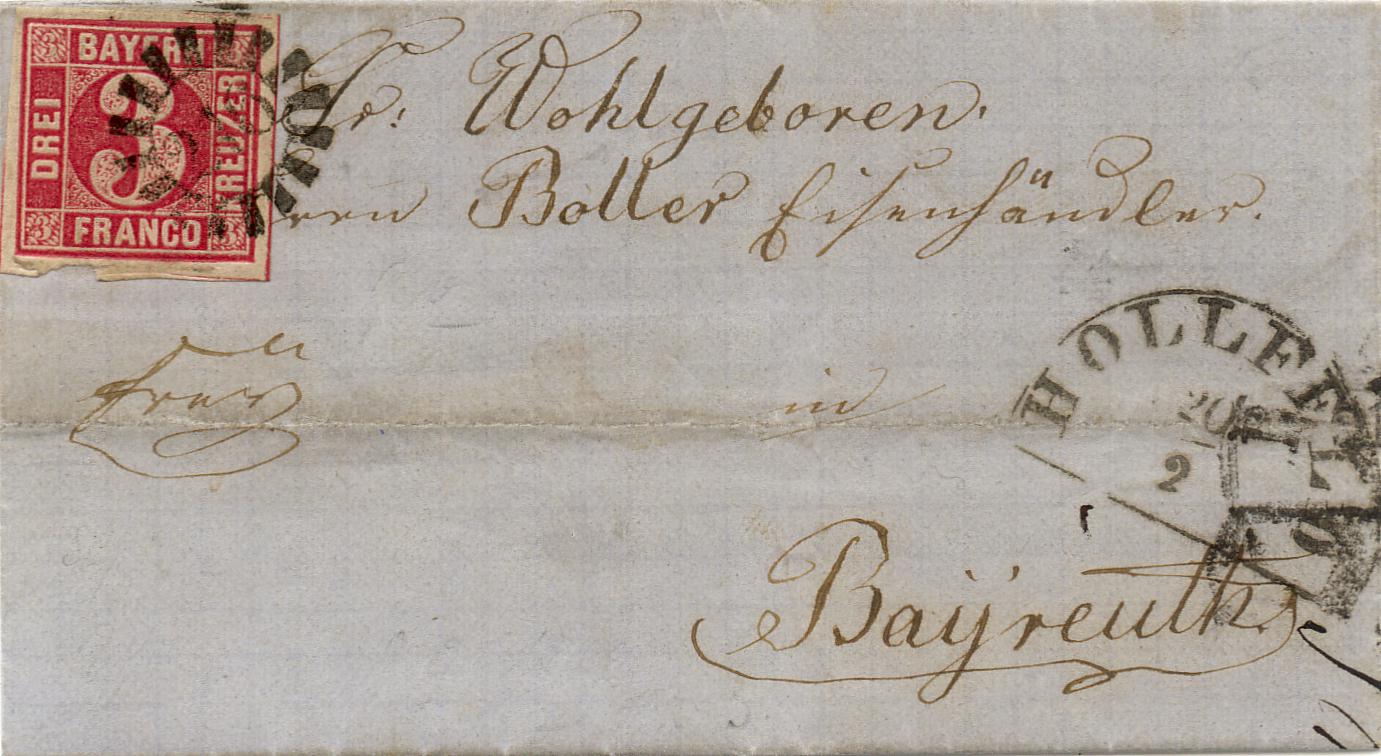 BAYERN
DREI
3
KREUZER
FRANCO
Sr: Wohlgeboren.
Herrn Boller Eisenhändler.
frey
in
HOLLFELD
20
2
Bayreuth